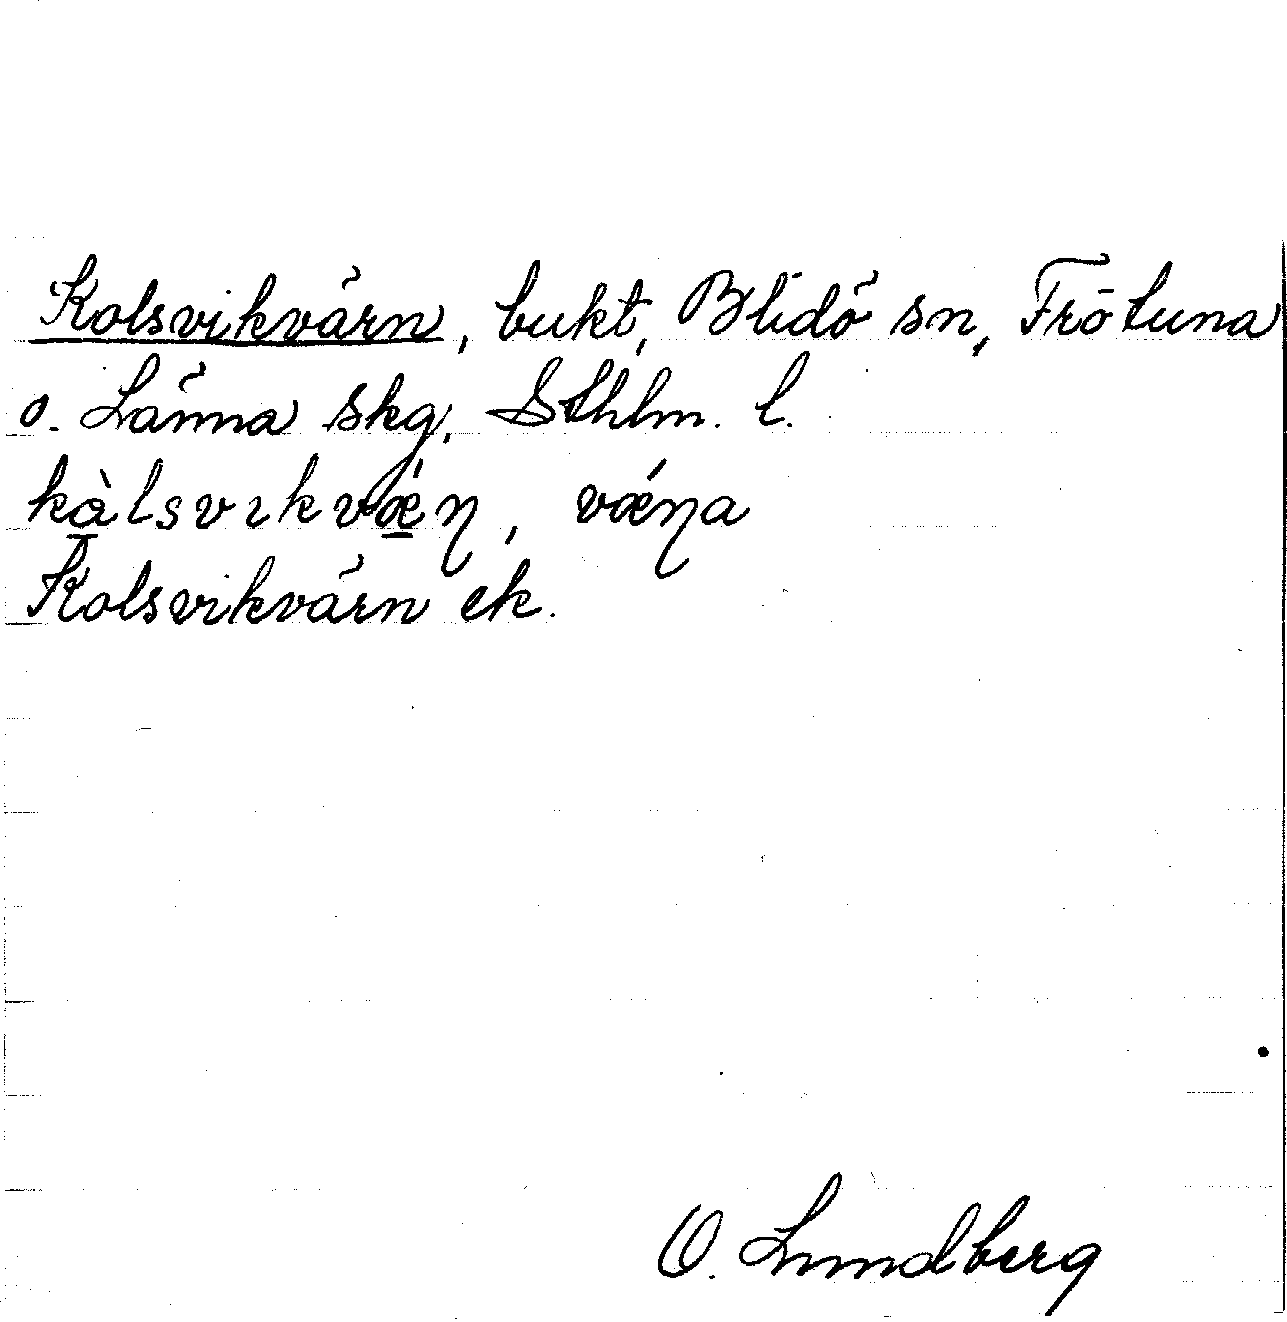 Kolsvikvärn, bukt, Blidö sn, Frötuna
o. Länna skg, Sthlm. l.
kàlsvıkvǽɳ, vǽɳa
Kolsvikvärn ek.
O. Lundberg